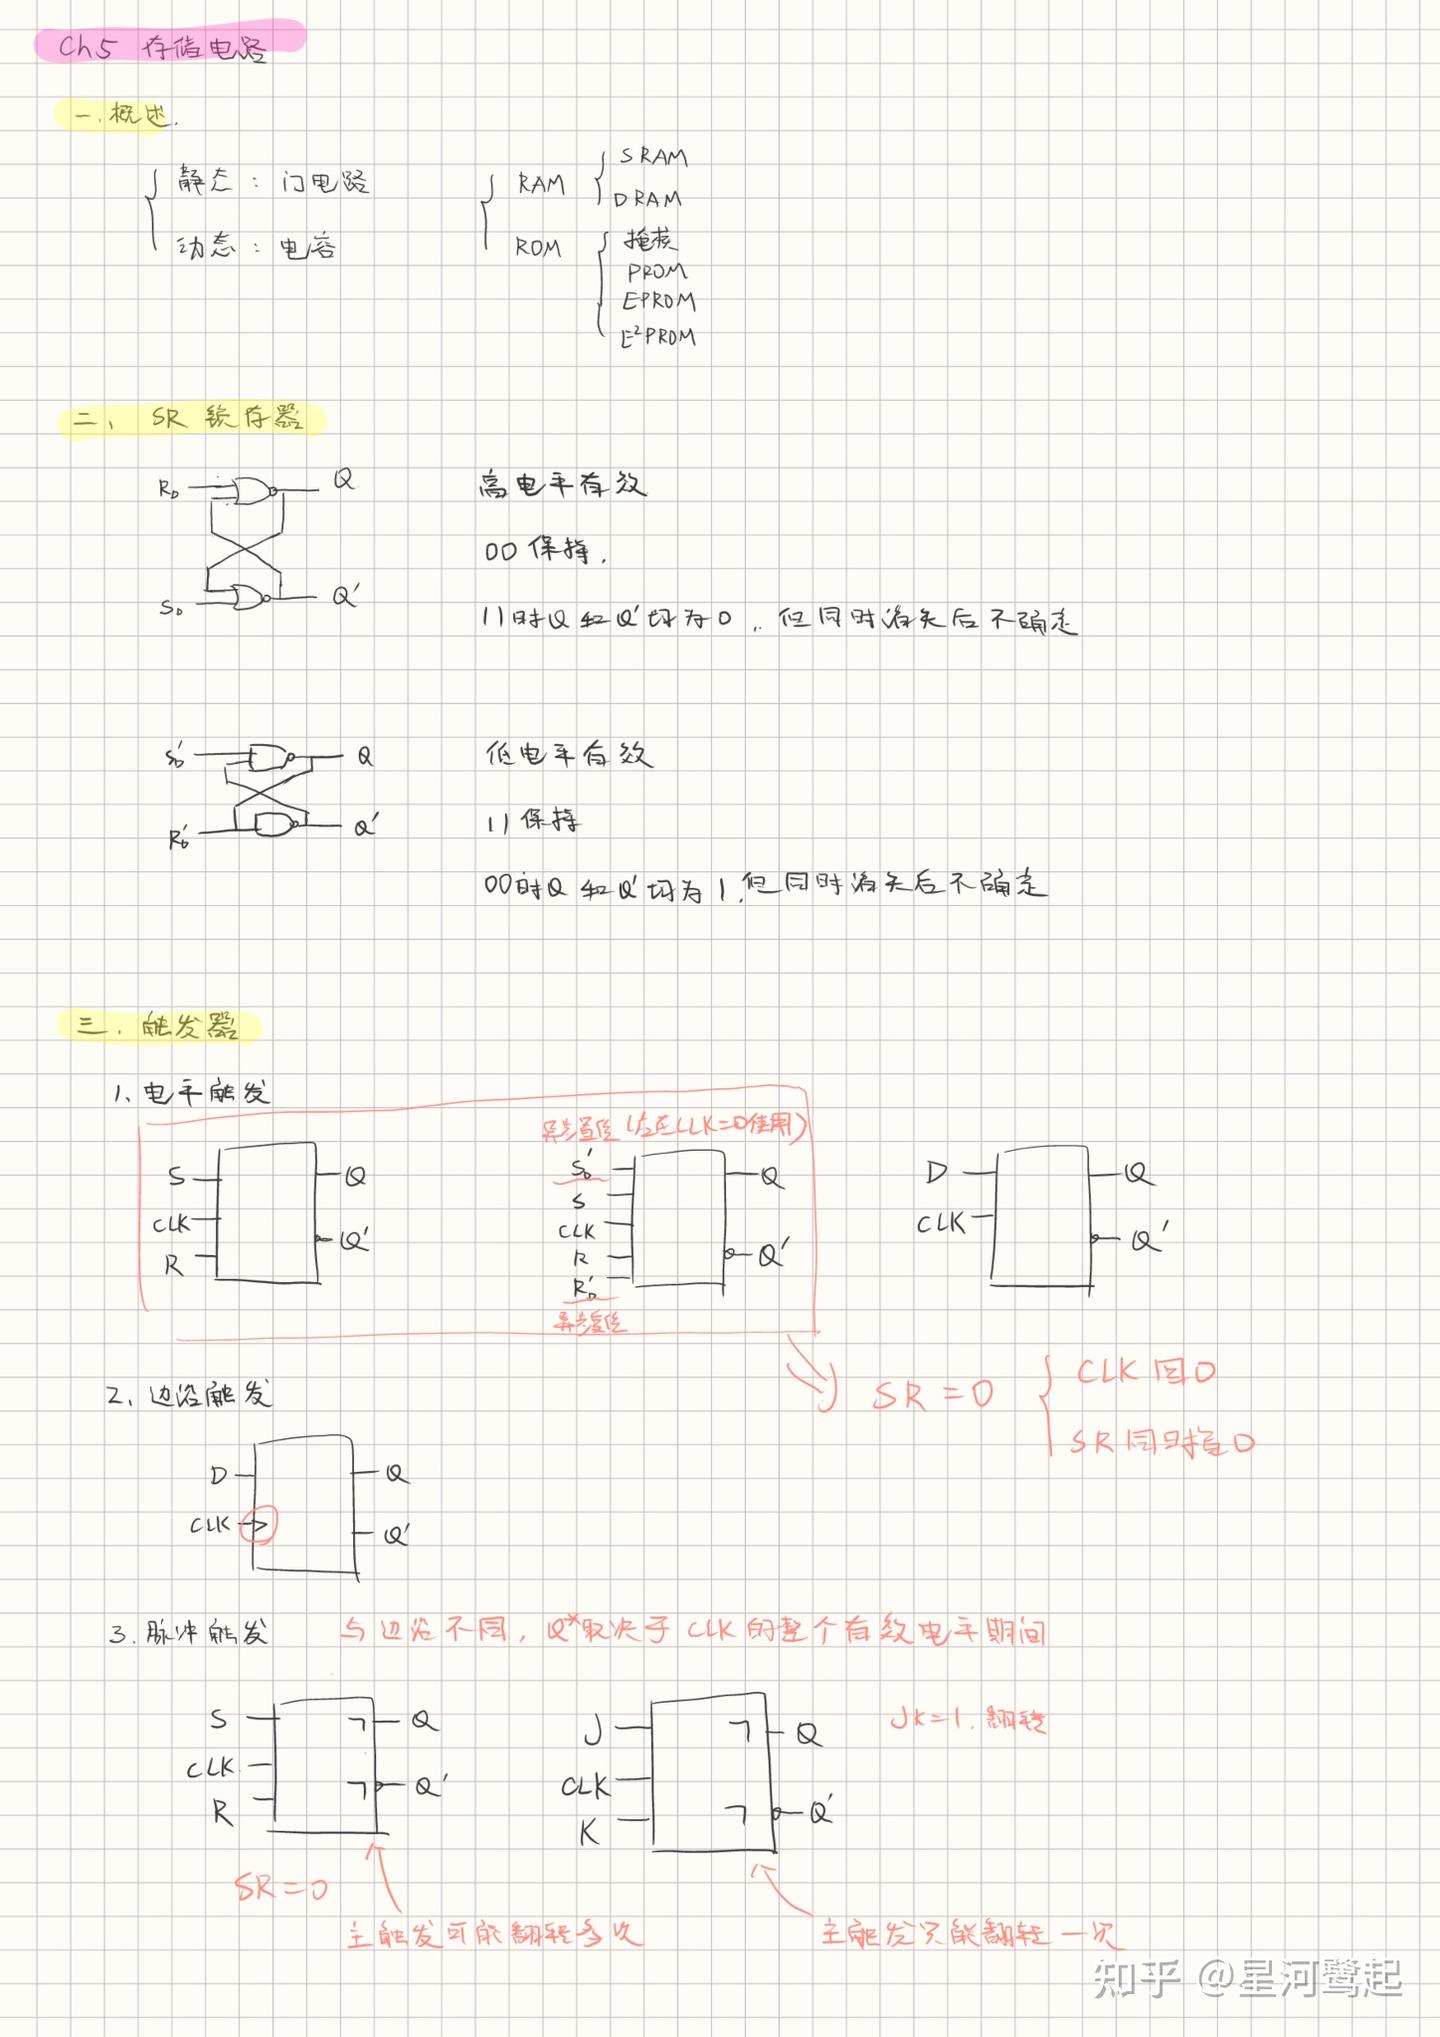 Ch5 存储电路
一.概述.
静态：门电路
动态：电容
RAM
SRAM
DRAM
ROM
掩模
PROM
EPROM
E²PROM
二、SR 锁存器
R_D
Q
S_D
Q'
高电平有效
00 保持.
11时Q和Q'均为0，但同时消失后不确定
S_D'
Q
R_D'
Q'
低电平有效
11保持
00时Q和Q'均为1,但同时消失后不确定
三.触发器
1、电平触发
S
CLK
R
Q
Q'
异步置位(应在CLK=0使用)
S_D'
S
CLK
R
R_D'
Q
Q'
异步复位
D
CLK
Q
Q'
SR=0
CLK回0
SR同时置0
2、边沿触发
D
CLK
Q
Q'
3.脉冲触发
与边沿不同，Q*取决于CLK的整个有效电平期间
S
CLK
R
Q
Q'
SR=0
主触发可能翻转多次
J
CLK
K
Q
Q'
JK=1.翻转
主触发只能翻转一次
知乎 @星河鹭起